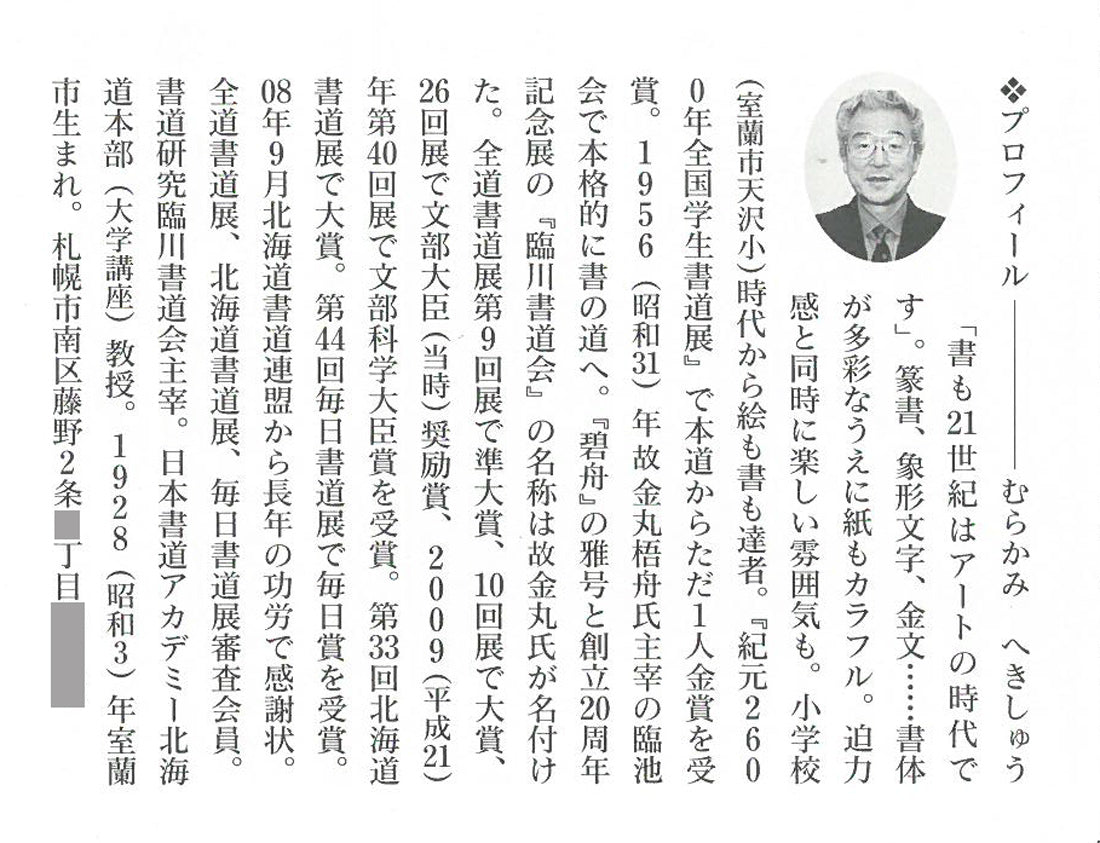 ❖プロフィール――――むらかみ　へきしゅう
「書も21世紀はアートの時代で
す」。篆書、象形文字、金文……書体
が多彩なうえに紙もカラフル。迫力
感と同時に楽しい雰囲気も。小学校
(室蘭市天沢小)時代から絵も書も達者。『紀元２６０
０年全国学生書道展』で本道からただ１人金賞を受
賞。１９５６(昭和31)年故金丸梧舟氏主宰の臨池
会で本格的に書の道へ。『碧舟』の雅号と創立20周年
記念展の『臨川書道会』の名称は故金丸氏が名付け
た。全道書道展第９回展で準大賞、10回展で大賞、
26回展で文部大臣(当時)奨励賞、２００９(平成21)
年第40回展で文部科学大臣賞を受賞。第33回北海道
書道展で大賞。第44回毎日書道展で毎日賞を受賞。
08年９月北海道書道連盟から長年の功労で感謝状。
全道書道展、北海道書道展、毎日書道展審査会員。
書道研究臨川書道会主宰。日本書道アカデミー北海
道本部(大学講座)教授。１９２８(昭和３)年室蘭
市生まれ。札幌市南区藤野２条 丁目